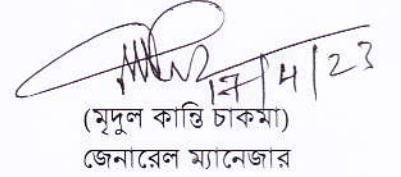 17/4/23
(মৃদুল কান্তি চাকমা)
জেনারেল ম্যানেজার